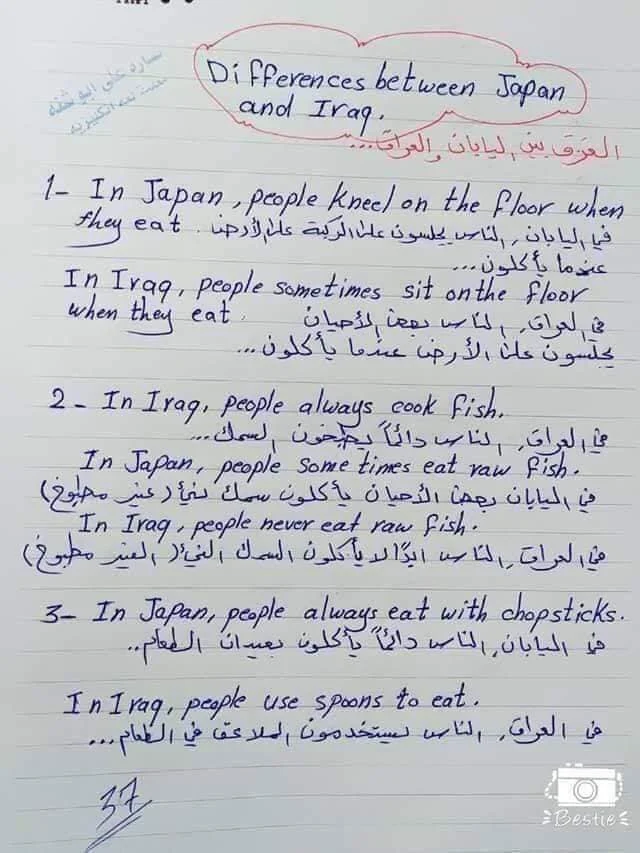 Differences between Japan
and Iraq.
الفرق بين اليابان والعراق...
1- In Japan, people kneel on the floor when
they eat. في اليابان, الناس يجلسون على الركبة على الأرض
عندما يأكلون...
In Iraq, people sometimes sit on the floor
when they eat. في العراق, الناس بعض الأحيان
يجلسون على الأرض عندما يأكلون...
2- In Iraq, people always cook fish.
في العراق, الناس دائماً يطبخون السمك...
In Japan, people sometimes eat raw fish.
في اليابان بعض الأحيان يأكلون سمك نيء (غير مطبوخ)
In Iraq, people never eat raw fish.
في العراق, الناس ابدًا لا يأكلون السمك النيء (الغير مطبوخ)
3- In Japan, people always eat with chopsticks.
في اليابان, الناس دائماً يأكلون بعيدان الطعام..
In Iraq, people use spoons to eat.
في العراق, الناس يستخدمون الملاعق في الطعام...
37
Bestie